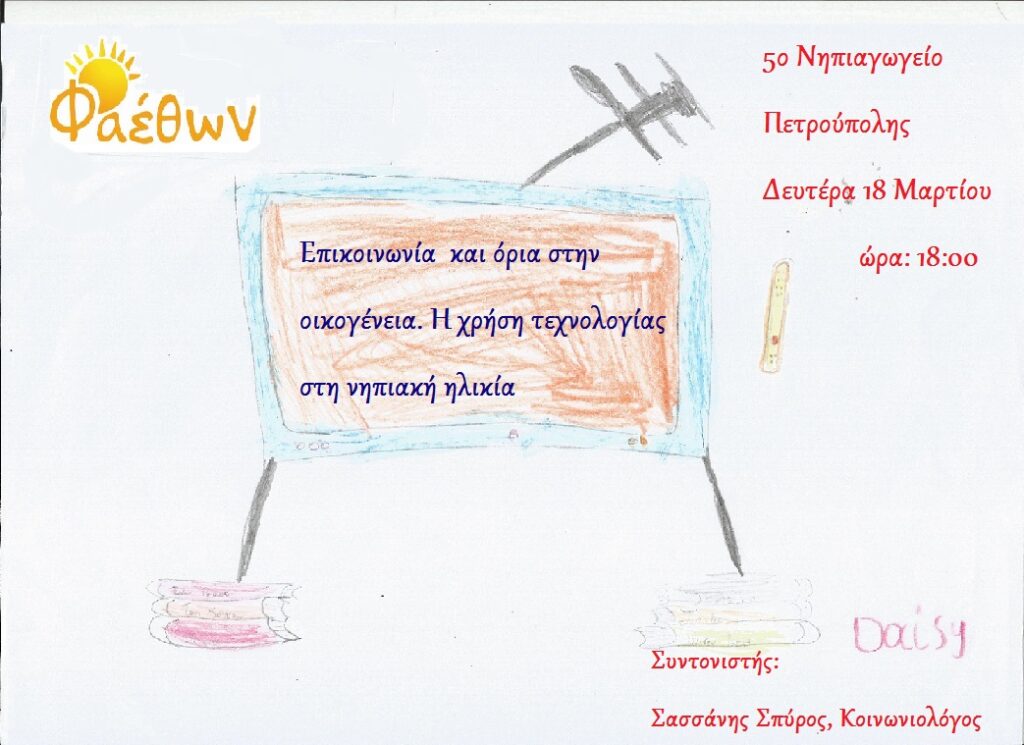 Φαέθων
5ο Νηπιαγωγείο
Πετρούπολης
Δευτέρα 18 Μαρτίου
ώρα: 18:00
Επικοινωνία και όρια στην
οικογένεια. Η χρήση τεχνολογίας
στη νηπιακή ηλικία
Daisy
Συντονιστής:
Σασσάνης Σπύρος, Κοινωνιολόγος